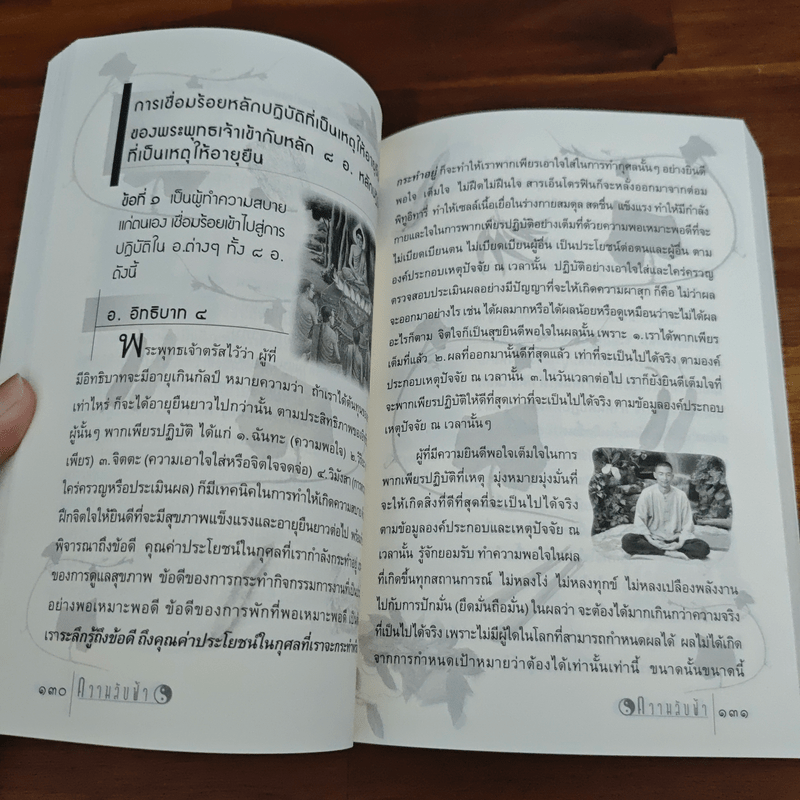 การเชื่อมร้อยหลักปฏิบัติที่เป็นเหตุให้
ของพระพุทธเจ้าเข้ากับหลัก ๘ อ.
ที่เป็นเหตุให้อายุยืน
ข้อที่ ๑ เป็นผู้ทำความสบาย
แก่ตนเอง เชื่อมร้อยเข้าไปสู่การ
ปฏิบัติใน อ.ต่างๆ ทั้ง ๘ อ.
ดังนี้
อ. อิทธิบาท ๔
พระพุทธเจ้าตรัสไว้ว่า ผู้ที่
มีอิทธิบาทจะมีอายุเกินกัลป์ หมายความว่า ถ้าเราได้
เท่าไหร่ ก็จะได้อายุยืนยาวไปกว่านั้น ตามประสิทธิภาพ
ผู้นั้นๆ พากเพียรปฏิบัติ ได้แก่ ๑.ฉันทะ (ความพอใจ) ๒.
เพียร) ๓.จิตตะ (ความเอาใจใส่หรือจิตใจจดจ่อ) ๔.วิมังสา
ใคร่ครวญหรือประเมินผล) ก็มีเทคนิคในการทำให้เกิดความ
ฝึกจิตใจให้ยินดีที่จะมีสุขภาพแข็งแรงและอายุยืนยาวต่อไป
พิจารณาถึงข้อดี คุณค่าประโยชน์ในกุศลที่เรากำลังกระทำอยู่
ของการดูแลสุขภาพ ข้อดีของการกระทำกิจกรรมการงานที่
อย่างพอเหมาะพอดี ข้อดีของการพักที่พอเหมาะพอดี
เราระลึกรู้ถึงข้อดี ถึงคุณค่าประโยชน์ในกุศลที่เราจะกระทำ
๑๓๐ ความลับฟ้า
กระทำอยู่ ก็จะทำให้เราพากเพียรเอาใจใส่ในการทำกุศลนั้นๆ อย่างยินดี
พอใจ เต็มใจ ไม่ฝืดไม่ฝืนใจ สารเอ็นโดรฟินก็จะหลั่งออกมาจากต่อม
พิทูอิทารี่ ทำให้เซลล์เนื้อเยื่อในร่างกายสมดุล สดชื่น แข็งแรง ทำให้มีกำลัง
กายและใจในการพากเพียรปฏิบัติอย่างเต็มที่ด้วยความพอเหมาะพอดีที่จะ
ไม่เบียดเบียนตน ไม่เบียดเบียนผู้อื่น เป็นประโยชน์ต่อตนและผู้อื่น ตาม
องค์ประกอบเหตุปัจจัย ณ เวลานั้น ปฏิบัติอย่างเอาใจใส่และใคร่ครวญ
ตรวจสอบประเมินผลอย่างมีปัญญาที่จะให้เกิดความผาสุก ก็คือ ไม่ว่าผล
จะออกมาอย่างไร เช่น ได้ผลมากหรือได้ผลน้อยหรือดูเหมือนว่าจะไม่ได้ผล
อะไรก็ตาม จิตใจก็เป็นสุขยินดีพอใจในผลนั้น เพราะ ๑.เราได้พากเพียร
เต็มที่แล้ว ๒.ผลที่ออกมานั้นดีที่สุดแล้ว เท่าที่จะเป็นไปได้จริง ตามองค์
ประกอบเหตุปัจจัย ณ เวลานั้น ๓.ในวันเวลาต่อไป เราก็ยังยินดีเต็มใจที่
จะพากเพียรปฏิบัติให้ดีที่สุดเท่าที่จะเป็นไปได้จริง ตามข้อมูลองค์ประกอบ
เหตุปัจจัย ณ เวลานั้นๆ
ผู้ที่มีความยินดีพอใจเต็มใจในการ
พากเพียรปฏิบัติที่เหตุ มุ่งหมายมุ่งมั่นที่
จะให้เกิดสิ่งที่ดีที่สุดที่จะเป็นไปได้จริง
ตามข้อมูลองค์ประกอบและเหตุปัจจัย ณ
เวลานั้น รู้จักยอมรับ ทำความพอใจในผล
ที่เกิดขึ้นทุกสถานการณ์ ไม่หลงโง่ ไม่หลงทุกข์ ไม่หลงเปลืองพลังงาน
ไปกับการปักมั่น (ยึดมั่นถือมั่น) ในผลว่า จะต้องได้มากเกินกว่าความจริง
ที่เป็นไปได้จริง เพราะไม่มีผู้ใดในโลกที่สามารถกำหนดผลได้ ผลไม่ได้เกิด
จากการกำหนดเป้าหมายว่าต้องได้เท่านั้นเท่านี้ ขนาดนั้นขนาดนี้
ความลับฟ้า ๑๓๑